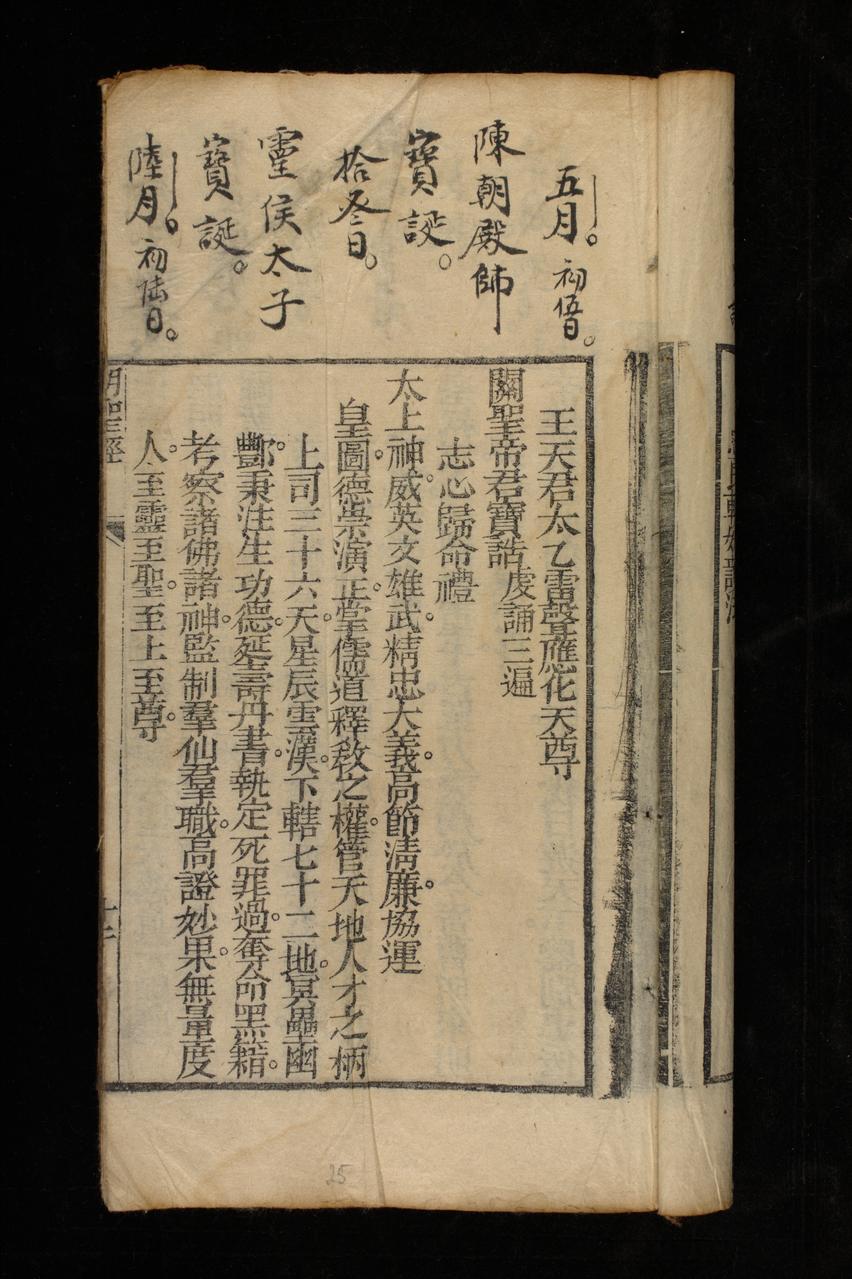 五月。初𠍇日。
陳朝殿帥
寶誕。
拾叄日。
霊侯太子
寶誕。
陸月。初陆日。
王天君太乙雷聲應化天尊
關聖帝君寶誥虔誦三遍
志心歸命禮
太上神威。英文雄武。精忠大義。高節淸廉。協運
皇圖。德崇演正。掌儒道釋敎之權。管天地人才之柄
上司三十六天。星辰雲漢。下轄七十二地。冥壘幽
酆。秉注生功德。延壽丹書。執定死罪過。奪命黑籍。
考察諸佛諸神。監制羣仙羣職。高證妙果。無量度
人。至靈至聖。至上至尊。
明聖經